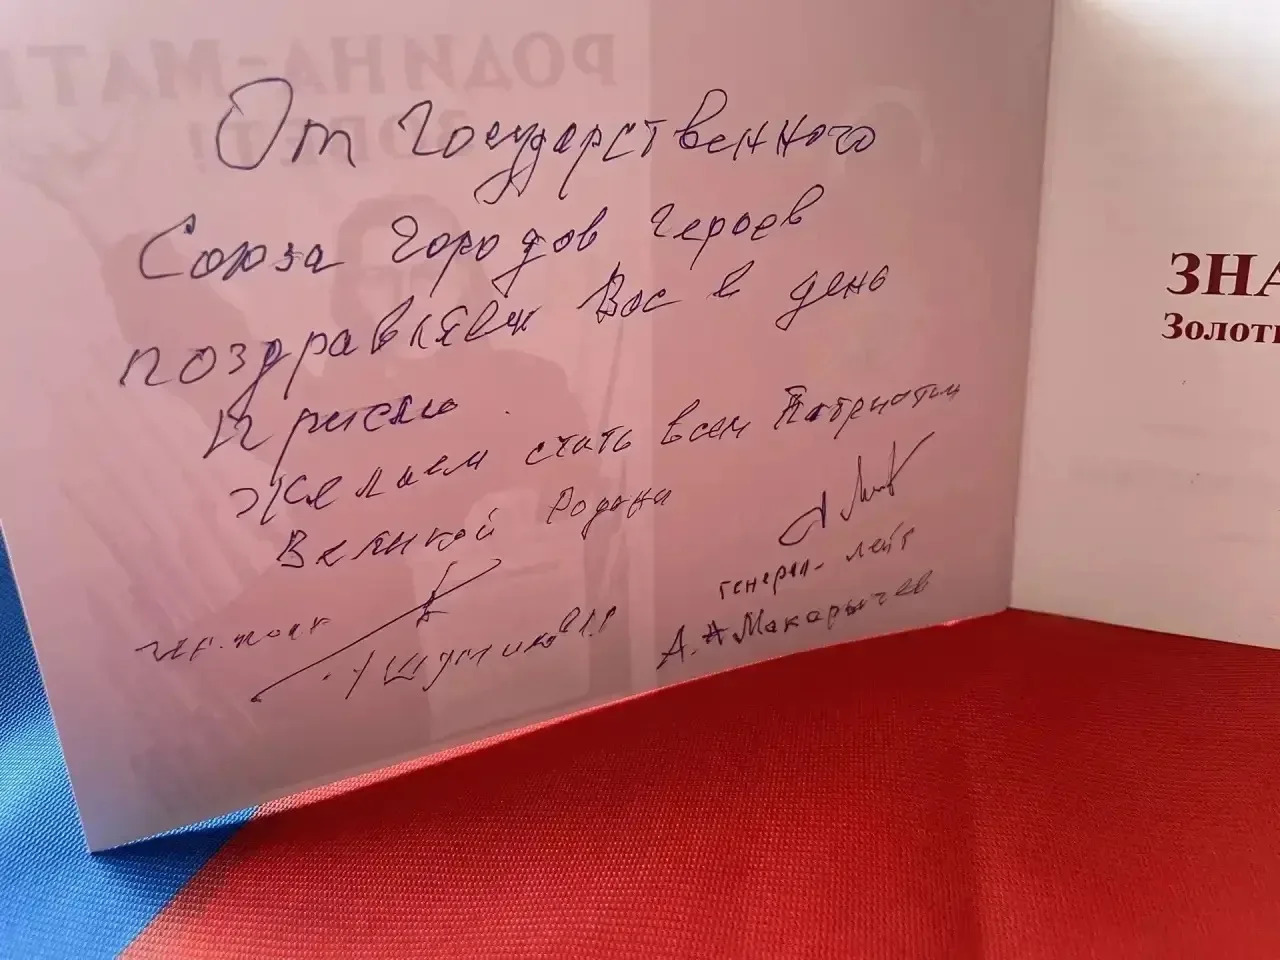 РОДИНА-МАТЬ
ЗОВЕТ!
От Государственного
Союза городов героев
поздравляем Вас в день
Присяги.
Желаем стать всем Патриотами
Великой Родины
генерал-лейт
Шутников
А. Н Макарычев
ЗНА
Золоты